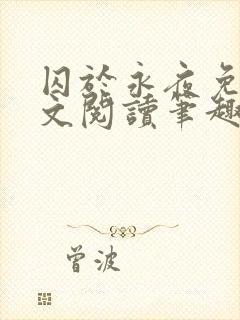 囚於永夜免
文閱讀筆趣
曾波